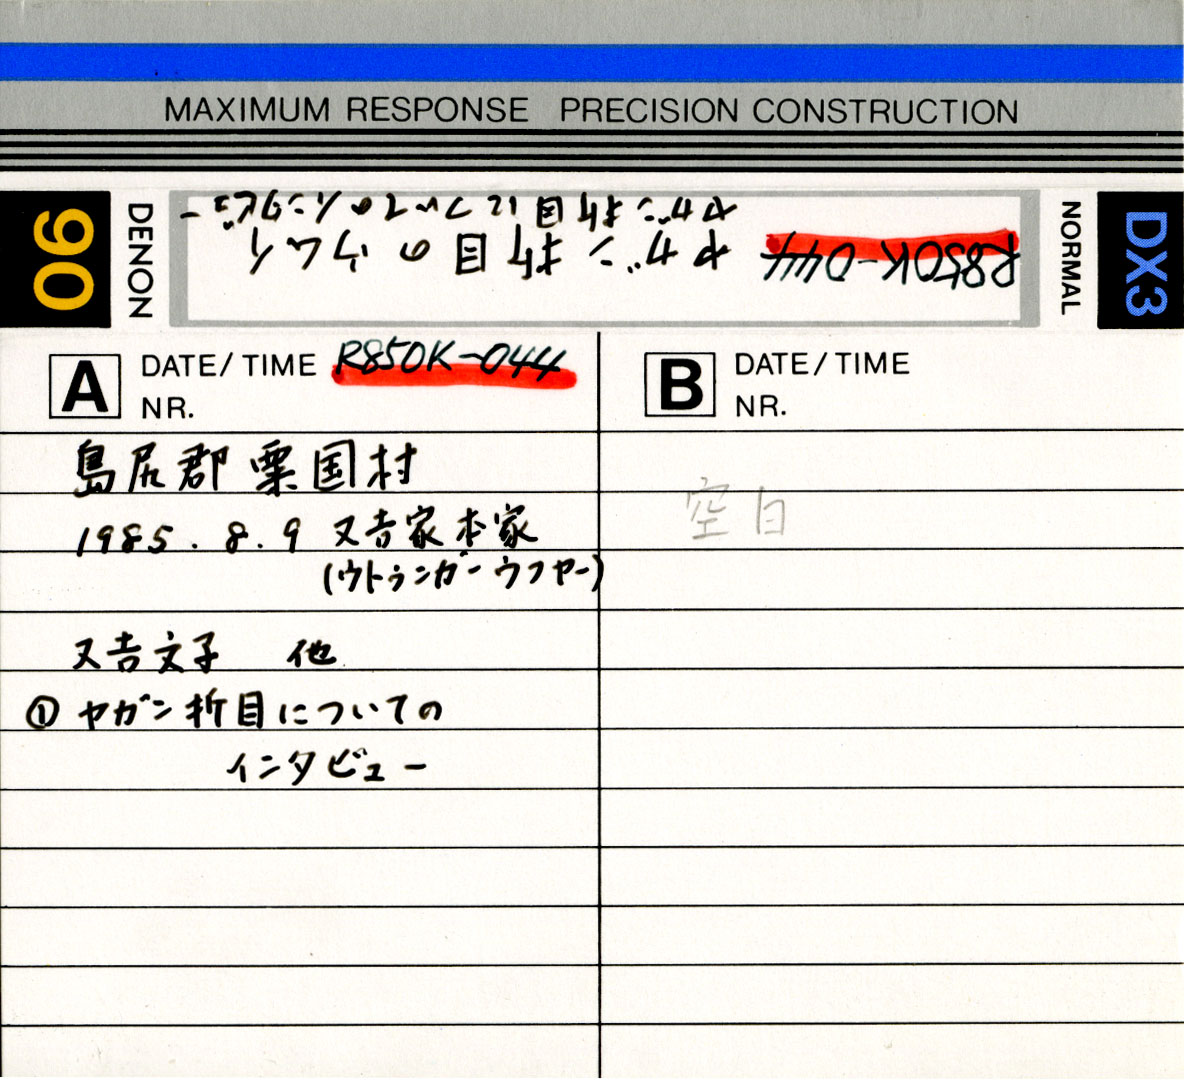 MAXIMUM RESPONSE PRECISION CONSTRUCTION
90
DENON
R850K-044
ヤガン折目のウムイ
ヤガン折目についてのインタビュー
NORMAL
DX3
A DATE/TIME R850K-044
NR.
島尻郡 粟国村
1985.8.9 又吉家本家
(ウトゥンガーウフヤー)
又吉文子 他
① ヤガン折目についての
インタビュー
B DATE/TIME
NR.
空白